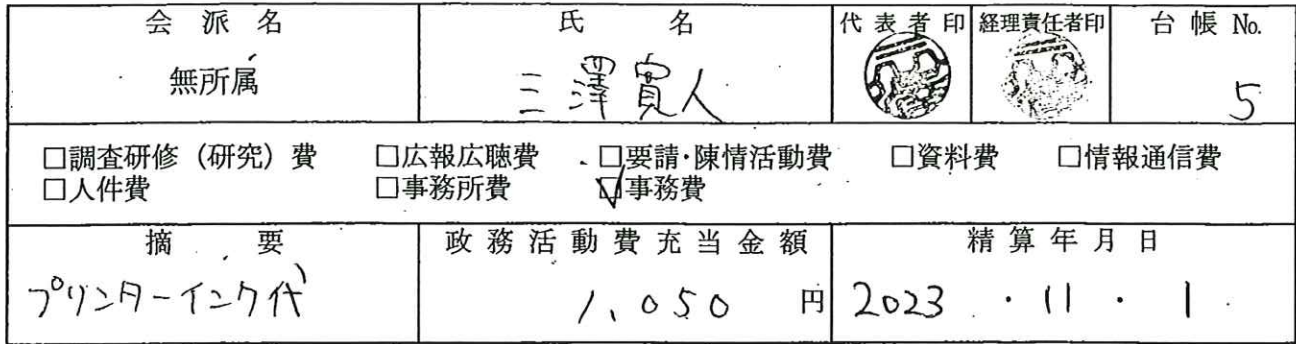 会派名 氏名 代表者印 経理責任者印 台帳No.
無所属 三澤寛人 5
□調査研修(研究)費 □広報広聴費 □要請・陳情活動費 □資料費 □情報通信費
□人件費 □事務所費 ☑事務費
摘要 政務活動費充当金額 精算年月日
プリンターインク代 1,050円 2023・11・1